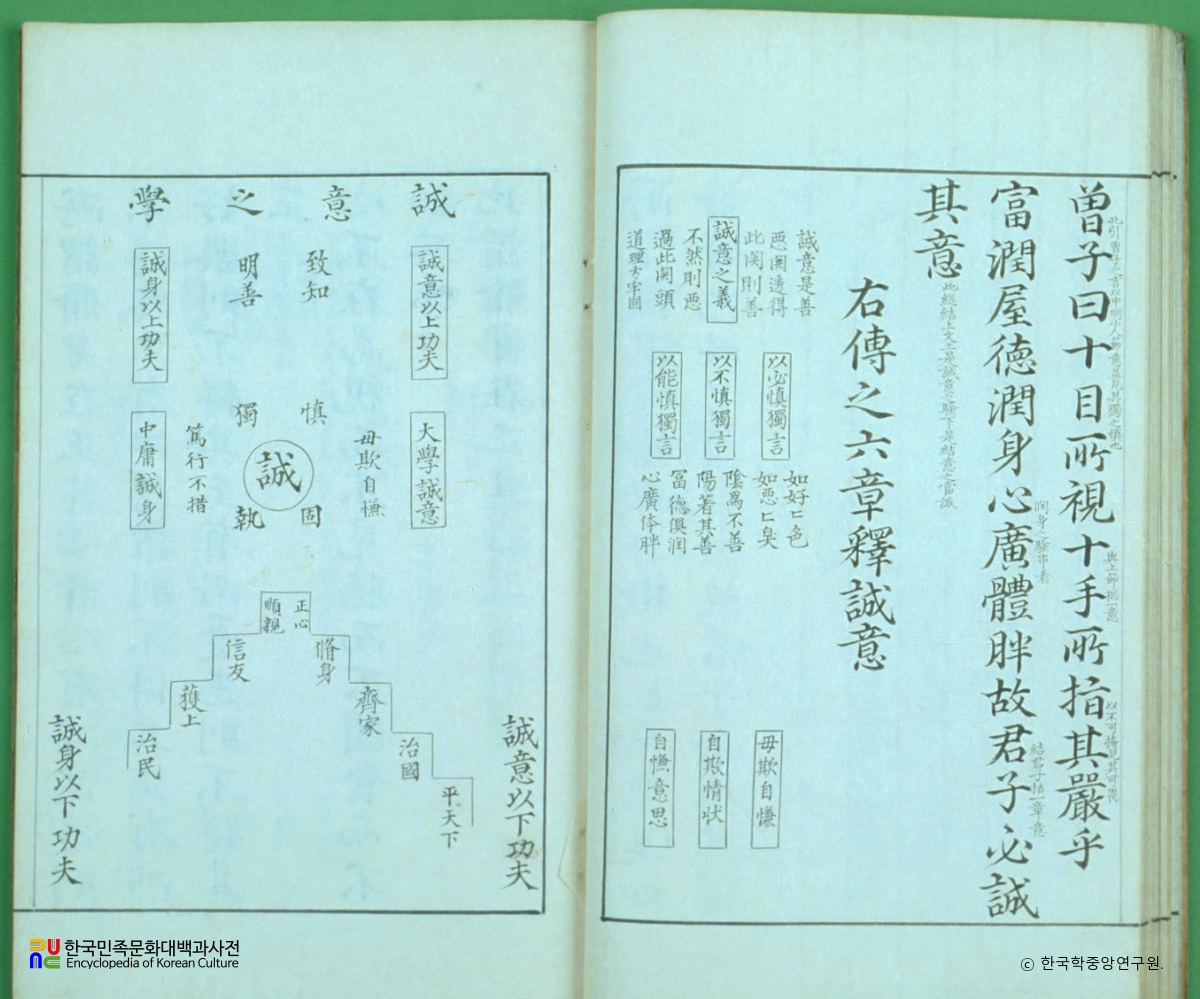 曾子曰十目所視十手所指其嚴乎
富潤屋德潤身心廣體胖故君子必誠
其意
右傳之六章釋誠意
誠意是善
惡関透得
此関則善
誠意之義
不然則惡
過此関頭
道理方牢固
以必慎獨言
以不慎獨言
以能慎獨言
如好〻色
如惡〻臭
陰爲不善
陽著其善
冨德俱潤
心廣体胖
毋欺自慊
自欺情状
自慊意思
誠意之學
誠意以上功夫
致知
明善
誠身以上功夫
大學誠意
毋欺自慊
慎獨
誠
固執
篤行不措
中庸誠身
正心
順親
脩身
信友
齊家
獲上
治國
治民
平天下
誠意以下功夫
誠身以下功夫
한국민족문화대백과사전
Encyclopedia of Korean Culture
ⓒ 한국학중앙연구원.